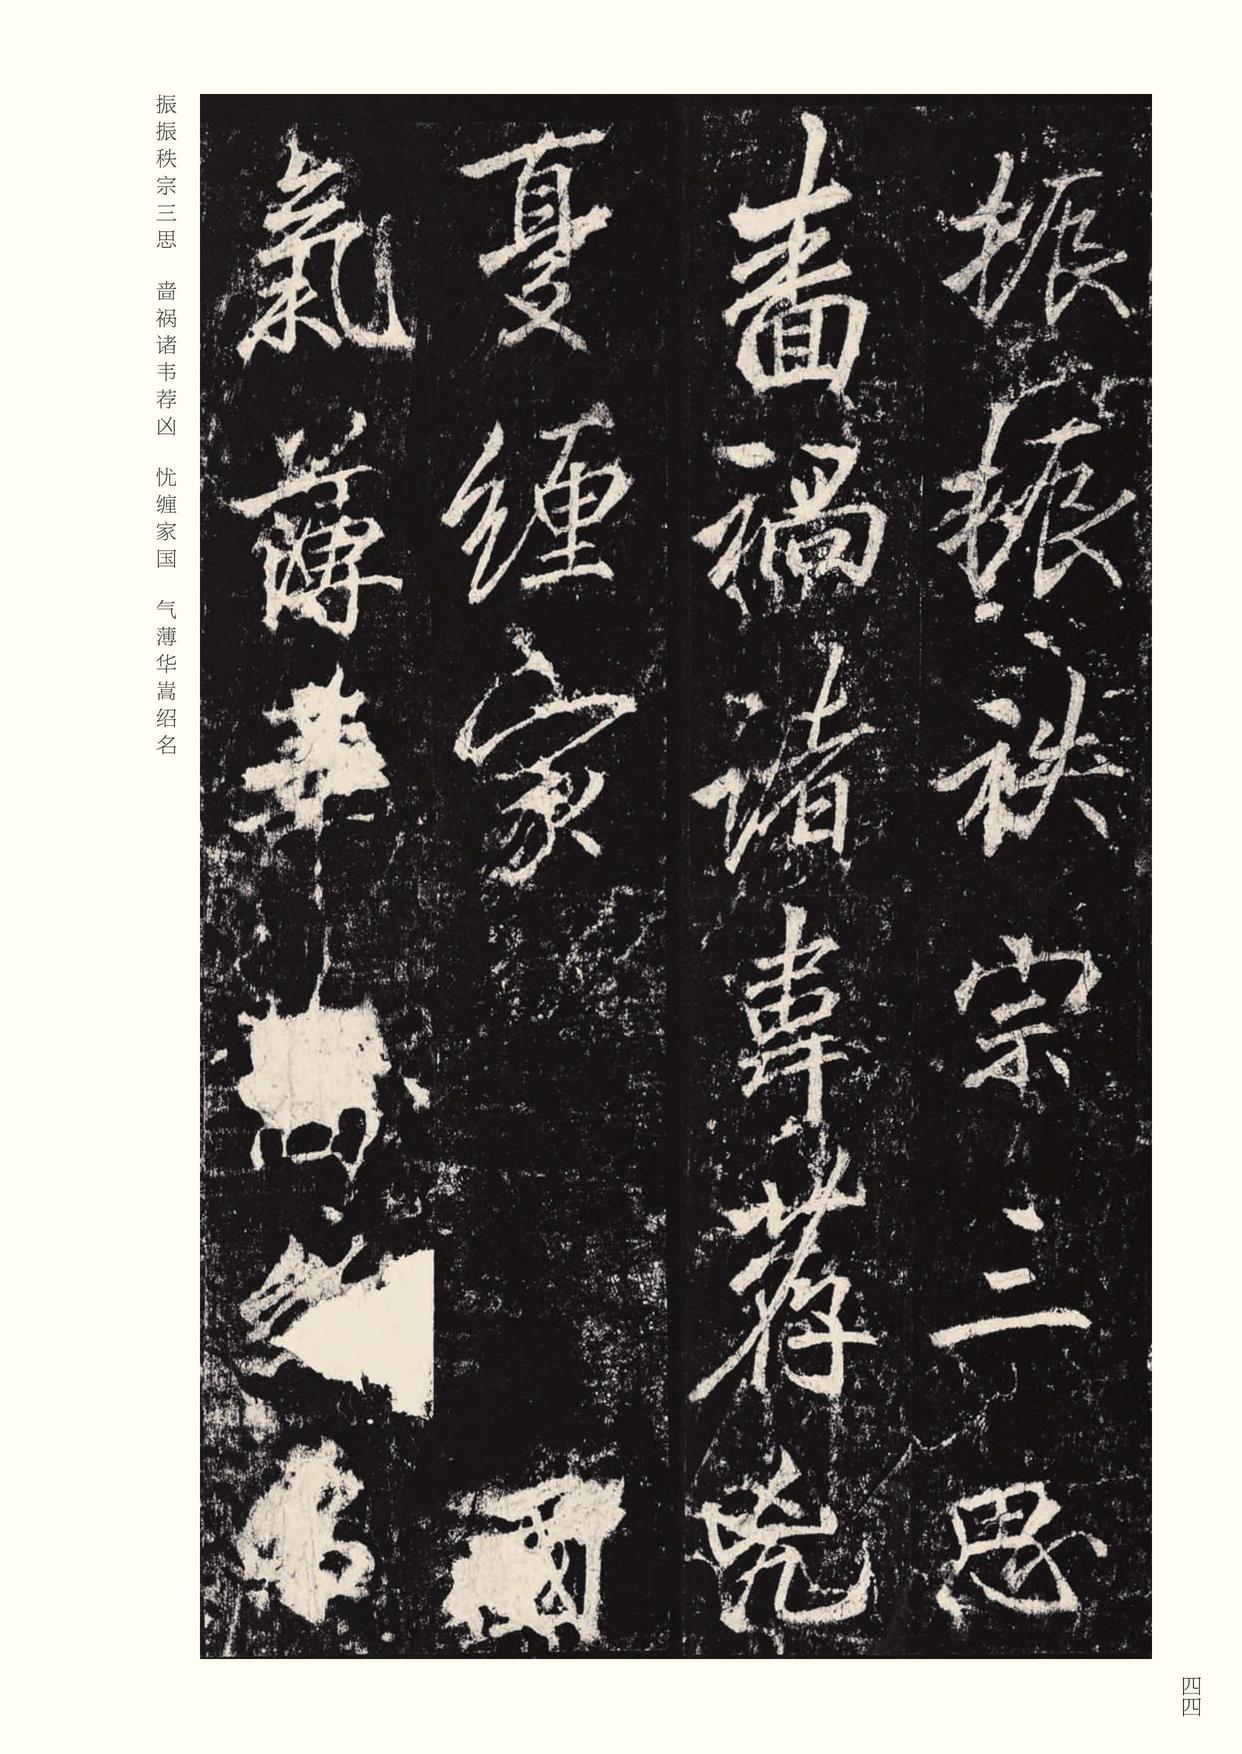 振振秩宗三思
啬祸诸韦荐凶
忧缠家国
气薄华嵩绍名
振振秩宗三思
嗇禍諸韋荐兇
憂纏家國
氣薄華
四四